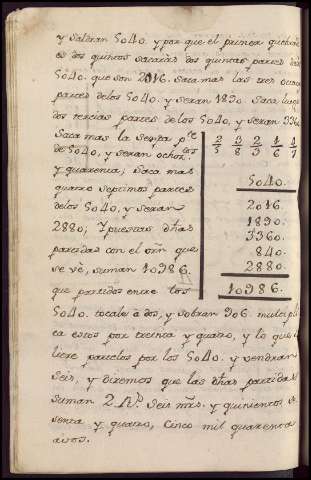 y saldran 5040. y por que el primer quebrado
es dos quintos sacarás dos quintas partes de los
5040. que son 2016. Saca mas las tres octavas
partes de los 5040. y seran 1890. Saca luego
dos tercias partes de los 5040, y seran 3360
Saca mas la sexta pte
de 5040, y seran ochotos
y quarenta; Saca mas
quatro septimos partes
de los 5040, y seran
2880; Y puestas dhas
partidas con el orn que
se vé, suman 10986.
que partidos entre los
2 3 2 1 4
5 8 3 6 7
5040.
2016.
1890.
3360.
840.
2880.
10986.
5040. tocale à dos, y sobran 906. multipli
ca estos por treinta y quatro, y lo que sa
liere partelos por los 5040. y vendran
Seis, y diremos que las dhas partidas
suman 2 Rs. Seis mrs. y quinientos se
senta y quatro, cinco mil quarenta
avos.